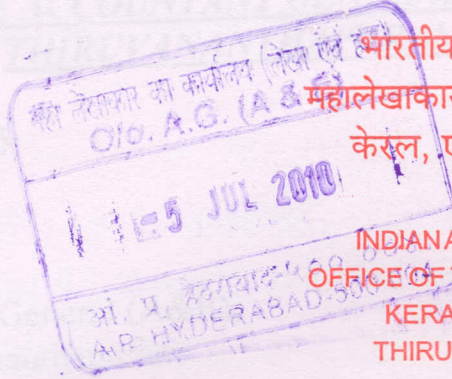 महा लेखाकार का कार्यालय (लेखा एवं हक)
O/o. A.G. (A & E)
-5 JUL 2010
A.P. HYDERABAD-500
भारतीय
महालेखाकार
केरल,
INDIAN A
OFFICE OF
KERA
THIRU